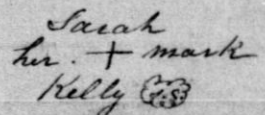 Sarah
her. + mark
Kelly L.S